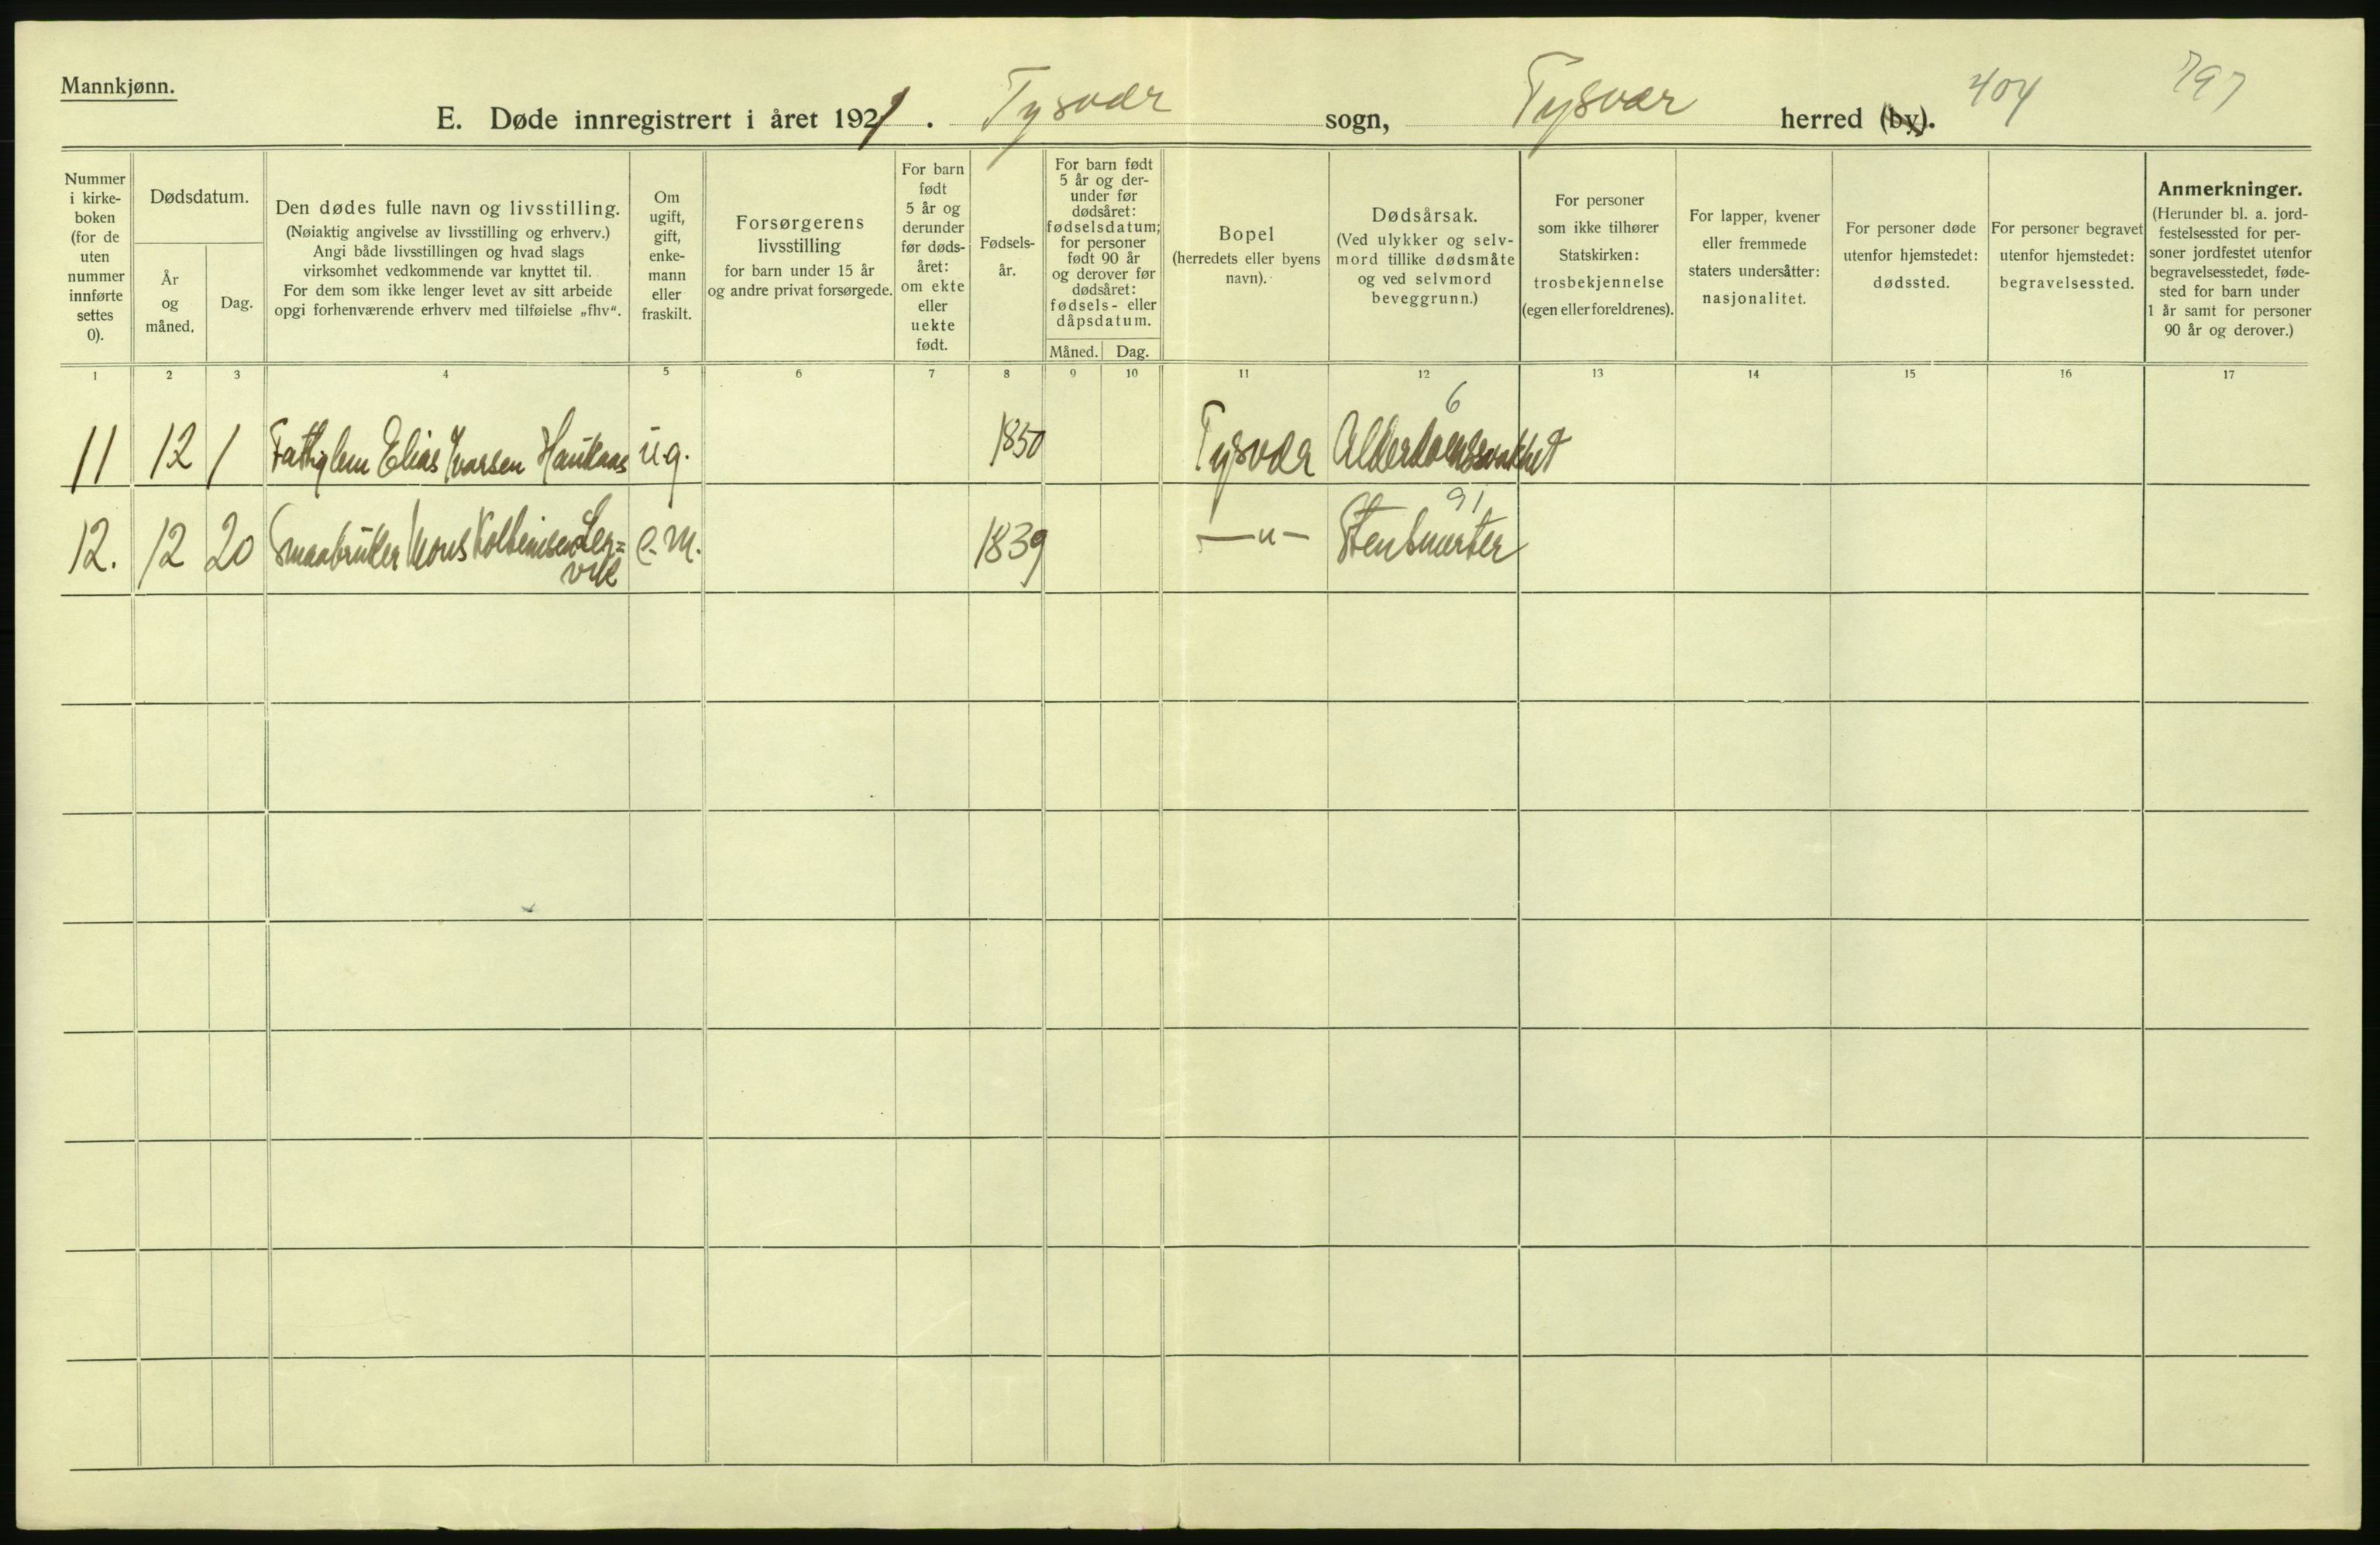 Mannkjønn.
E. Døde innregistrert i året 1921. Tysvær sogn, Tysvær herred (by). 404 797
Nummer i kirke-boken (for de uten nummer innførte settes 0).
Dødsdatum.
År og måned.
Dag.
Den dødes fulle navn og livsstilling.
(Nøiaktig angivelse av livsstilling og erhverv.)
Angi både livsstillingen og hvad slags
virksomhet vedkommende var knyttet til.
For dem som ikke lenger levet av sitt arbeide
opgi forhenværende erhverv med tilføielse „fhv“.
Om ugift, gift, enke-mann eller fraskilt.
Forsørgerens
livsstilling
for barn under 15 år
og andre privat forsørgede.
For barn født 5 år og derunder før døds-året: om ekte eller uekte født.
Fødsels-år.
For barn født 5 år og der-under før dødsåret: fødselsdatum; for personer født 90 år og derover før dødsåret: fødsels- eller dåpsdatum.
Måned. Dag.
Bopel
(herredets eller byens
navn).
Dødsårsak.
(Ved ulykker og selv-
mord tillike dødsmåte
og ved selvmord
beveggrunn.)
For personer
som ikke tilhører
Statskirken:
trosbekjennelse
(egen eller foreldrenes).
For lapper, kvener
eller fremmede
staters undersåtter:
nasjonalitet.
For personer døde
utenfor hjemstedet:
dødssted.
For personer begravet
utenfor hjemstedet:
begravelsessted.
Anmerkninger.
(Herunder bl. a. jord-
festelsessted for per-
soner jordfestet utenfor
begravelsesstedet, føde-
sted for barn under
1 år samt for personer
90 år og derover.)
1 2 3 4 5 6 7 8 9 10 11 12 13 14 15 16 17
6
11 12 1 Fattiglem Elias Ivarsen Haukaas ug. 1850 Tysvær Alderdomssvakhet
91
12. 12 20 Smaabruker Mons Kolbeinsen Ler=
vik e.m. 1839 —"— Stensmerter